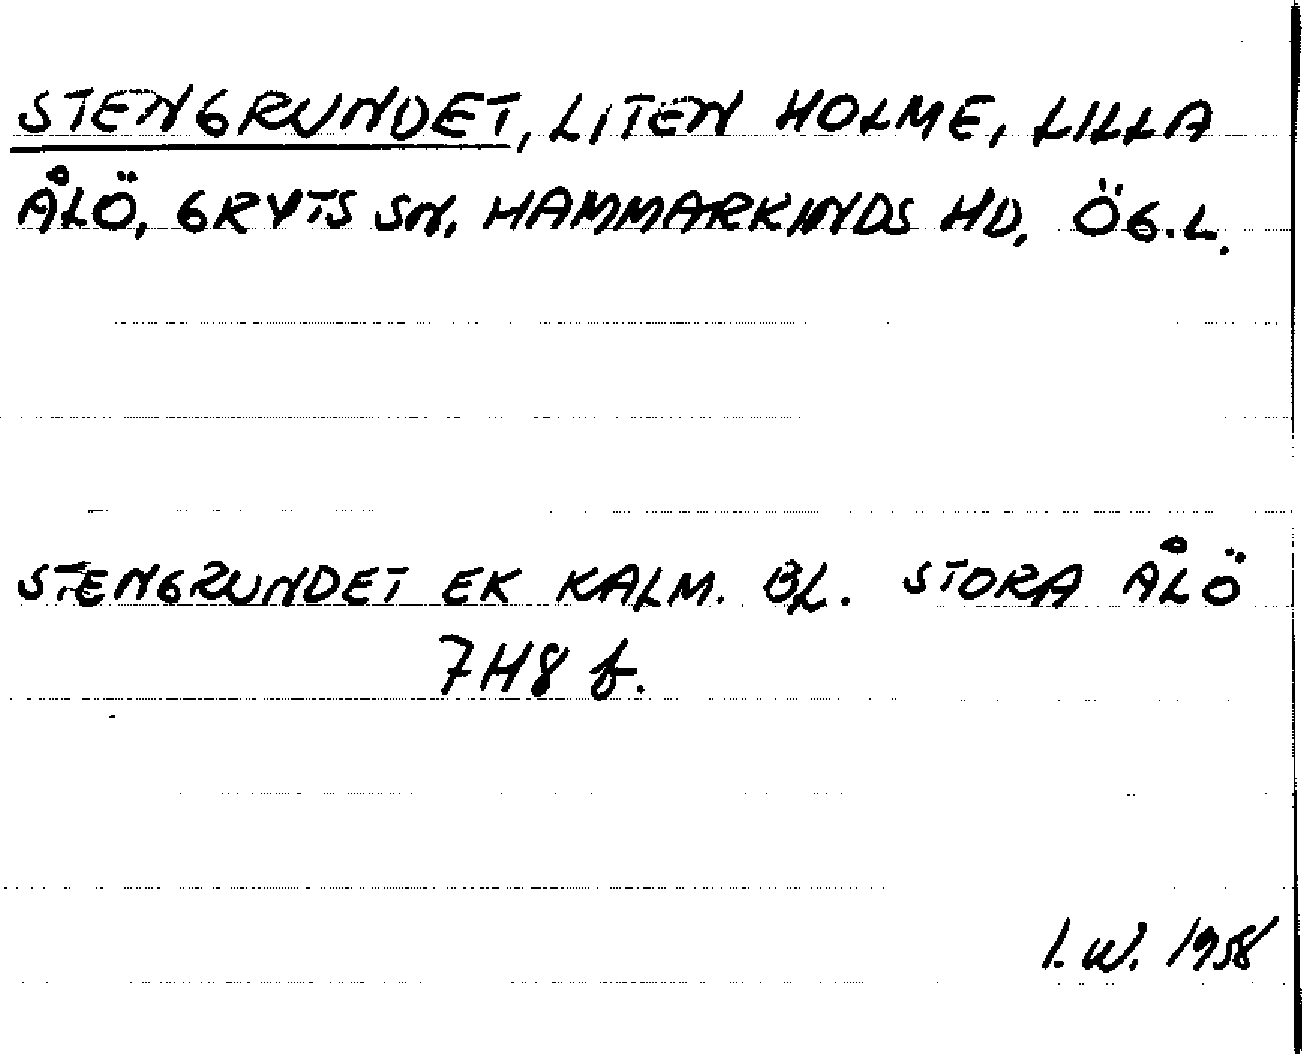 STENGRUNDET, LITEN HOLME, LILLA
ÅLÖ, GRYTS SN, HAMMARKINDS HD, ÖG.L.
STENGRUNDET EK KALM. BL. STORA ÅLÖ
7H8 f.
I.W. 1958